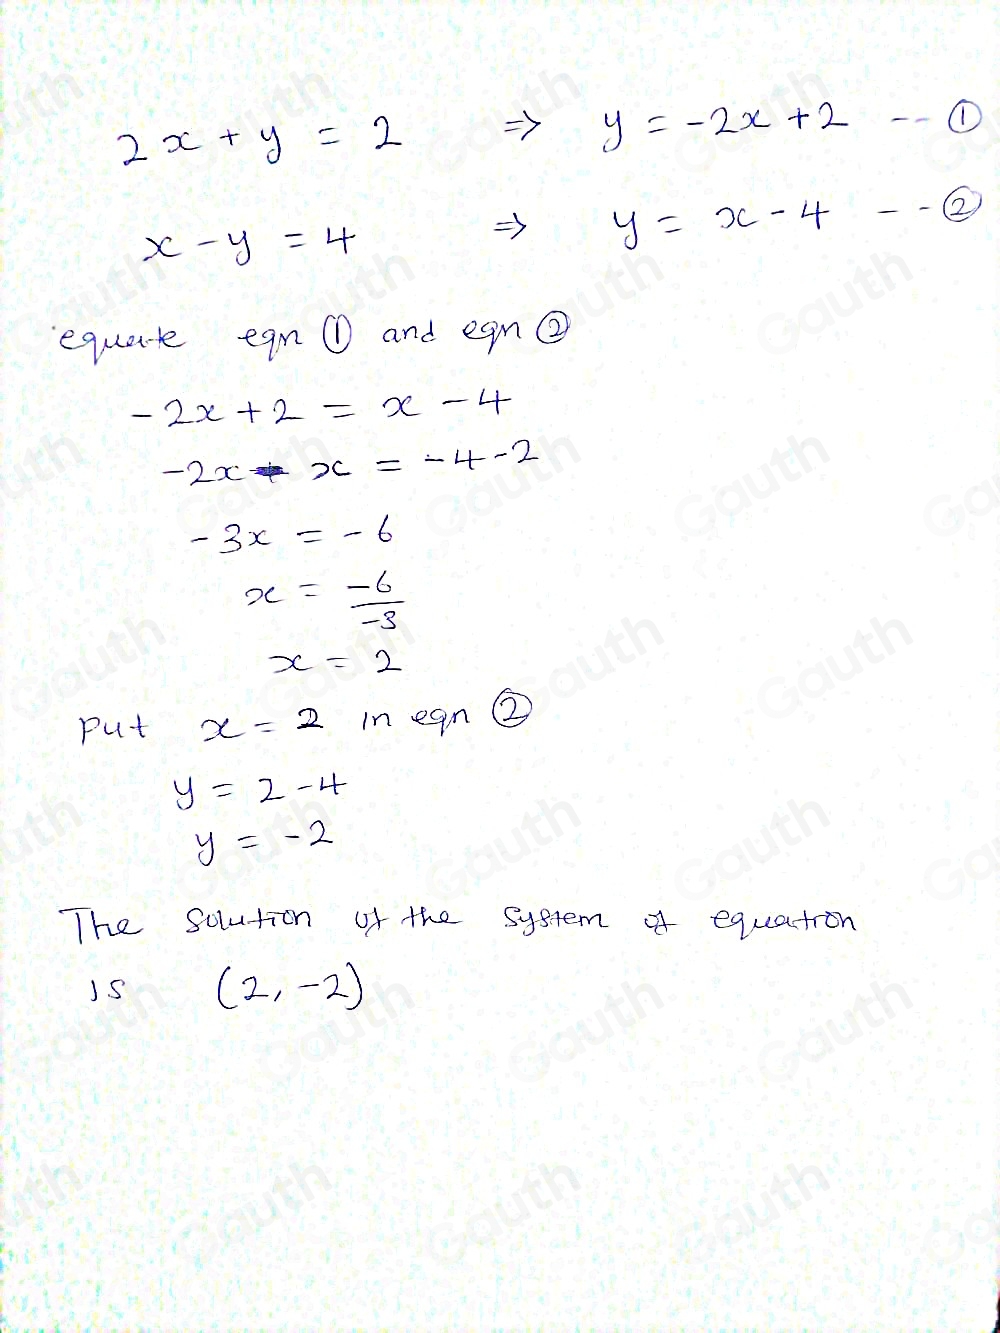 2x + y = 2 ⇒ y = -2x + 2 -- ①
x - y = 4 ⇒ y = x - 4 -- ②
equate eqn ① and eqn ②
-2x + 2 = x - 4
-2x - x = -4 - 2
-3x = -6
x = -6/-3
x = 2
Put x = 2 in eqn ②
y = 2 - 4
y = -2
The solution of the system of equation
is (2, -2)